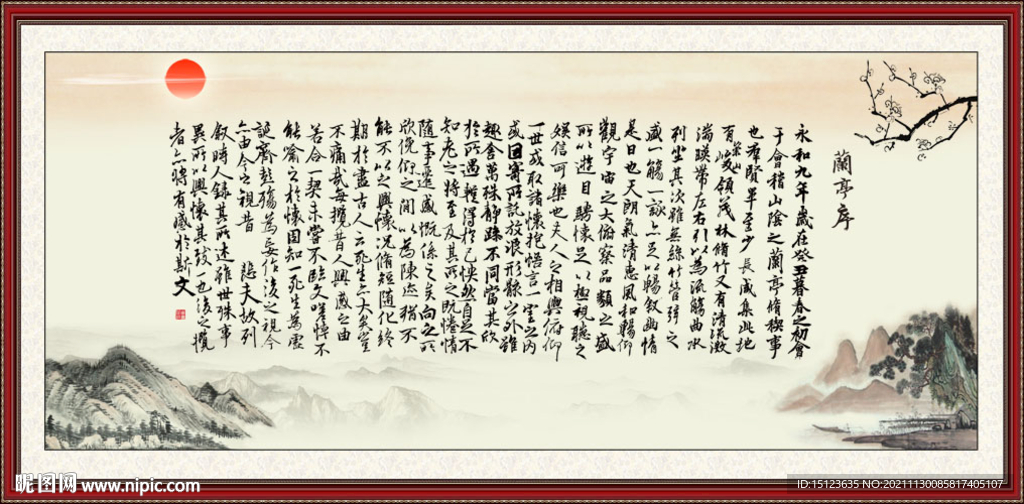 蘭亭序
永和九年歲在癸丑暮春之初會
于會稽山陰之蘭亭脩稧事
也羣賢畢至少長咸集此地
有崇山峻領茂林脩竹又有清流激
湍暎帶左右引以為流觴曲水
列坐其次雖無絲竹管弦之
盛一觴一詠亦足以暢敘幽情
是日也天朗氣清惠風和暢仰
觀宇宙之大俯察品類之盛
所以遊目騁懷足以極視聽之
娛信可樂也夫人之相與俯仰
一世或取諸懷抱悟言一室之內
或因寄所託放浪形骸之外雖
趣舍萬殊靜躁不同當其欣
於所遇蹔得於己怏然自足不
知老之將至及其所之既惓情
隨事遷感慨係之矣向之所
欣俛仰之間以為陳迹猶不
能不以之興懷況脩短隨化終
期於盡古人云死生亦大矣豈
不痛哉每攬昔人興感之由
若合一契未嘗不臨文嗟悼不
能喻之於懷固知一死生為虛
誕齊彭殤為妄作後之視今
亦由今之視昔 悲夫故列
敘時人錄其所述雖世殊事
異所以興懷其致一也後之攬
者亦將有感於斯文
昵图网 www.nipic.com
ID:15123635 NO:20211130085817405107